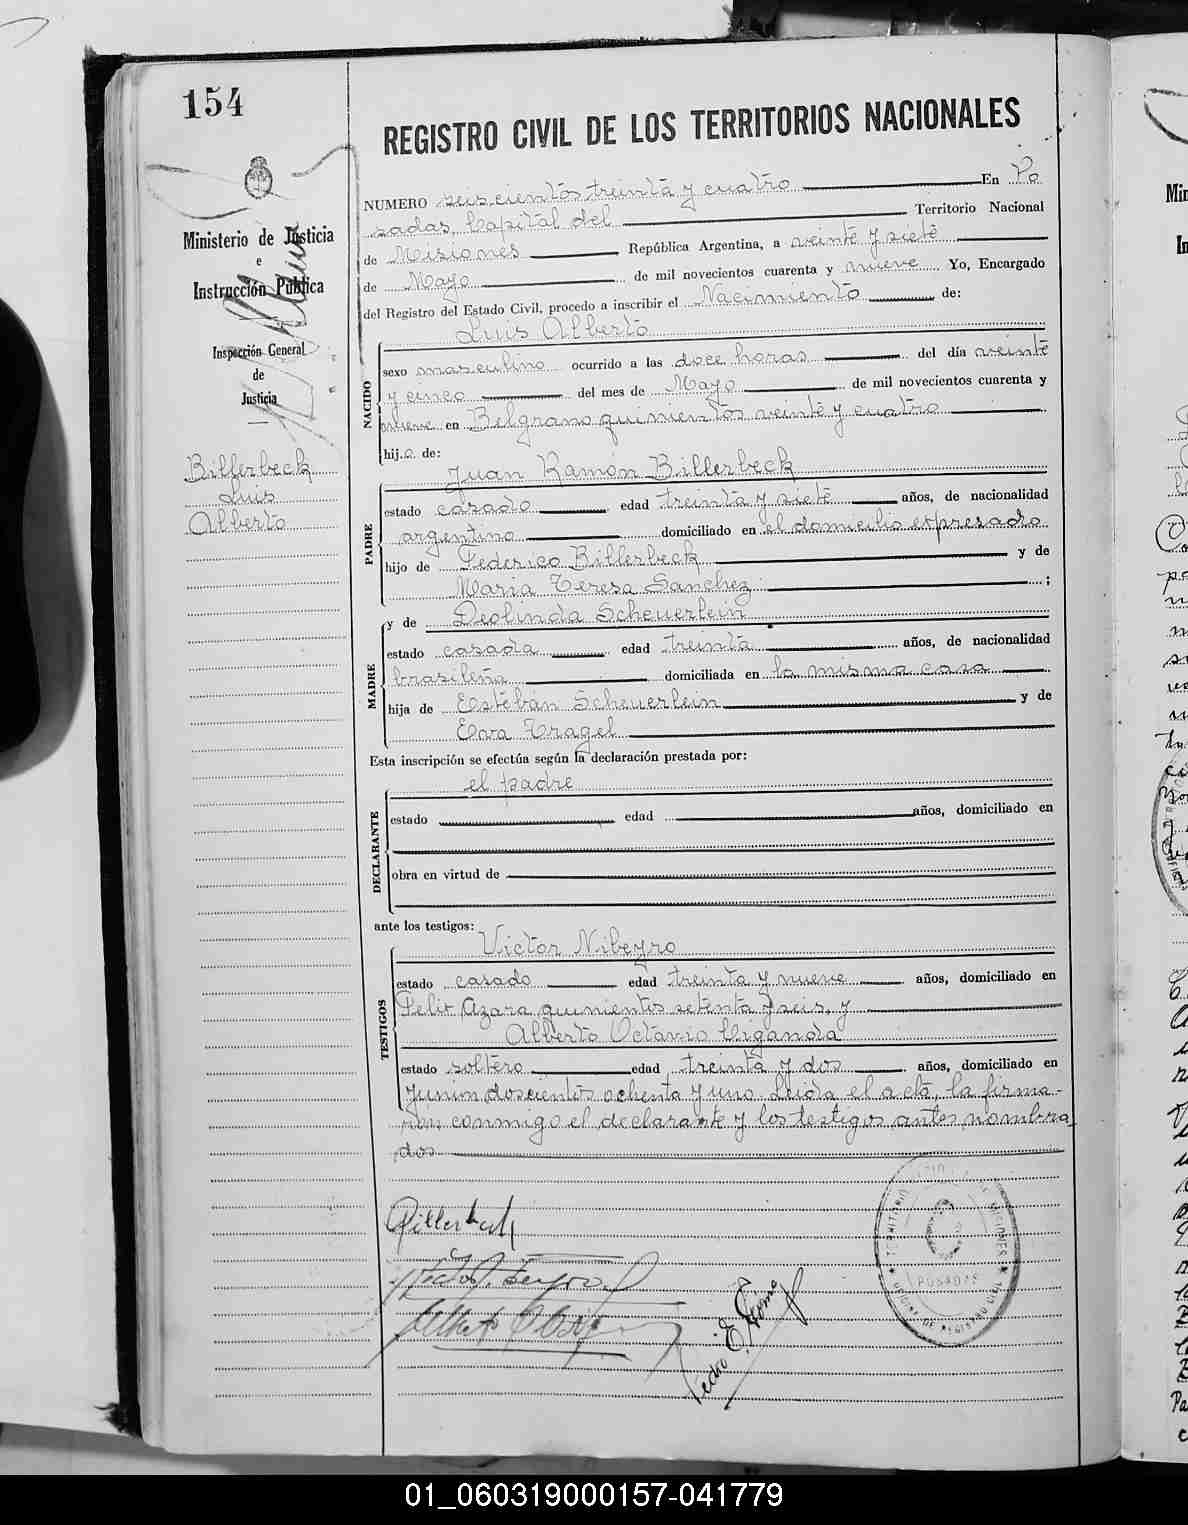 154
REGISTRO CIVIL DE LOS TERRITORIOS NACIONALES
Ministerio de Justicia
e
Instrucción Pública
Inspección General
de
Justicia
Billerbeck
Luis
Alberto
NUMERO seiscientos treinta y cuatro En Po
sadas, Capital del Territorio Nacional
de Misiones República Argentina, a veinte y siete
de Mayo de mil novecientos cuarenta y nueve Yo, Encargado
del Registro del Estado Civil, procedo a inscribir el Nacimiento de:
NACIDO
Luis Alberto
sexo masculino ocurrido a las doce horas del día veinte
y cinco del mes de Mayo de mil novecientos cuarenta y
nueve en Belgrano quinientos veinte y cuatro
hijo de:
PADRE
Juan Ramón Billerbeck
estado casado edad treinta y siete años, de nacionalidad
argentino domiciliado en el domicilio expresado
hijo de Federico Billerbeck y de
Maria Teresa Sanchez ;
MADRE
y de Deolinda Scheuerlein
estado casada edad treinta años, de nacionalidad
brasileña domiciliada en la misma casa
hija de Estéban Scheuerlein y de
Eva Tragel
Esta inscripción se efectúa según la declaración prestada por:
DECLARANTE
el padre
estado edad años, domiciliado en
obra en virtud de
ante los testigos:
TESTIGOS
Victor Nibeyro
estado casado edad treinta y nueve años, domiciliado en
Felix Azara quinientos setenta y seis, y
Alberto Octavio Ciganda
estado soltero edad treinta y dos años, domiciliado en
Junin doscientos ochenta y uno. Leida el acta, la firma-
ron conmigo el declarante y los testigos antes nombra
dos.
Billerbeck
Pedro E.
TERRITORIO MISIONES
POSADAS
OFICINA DE REGISTRO CIVIL
01_060319000157-041779